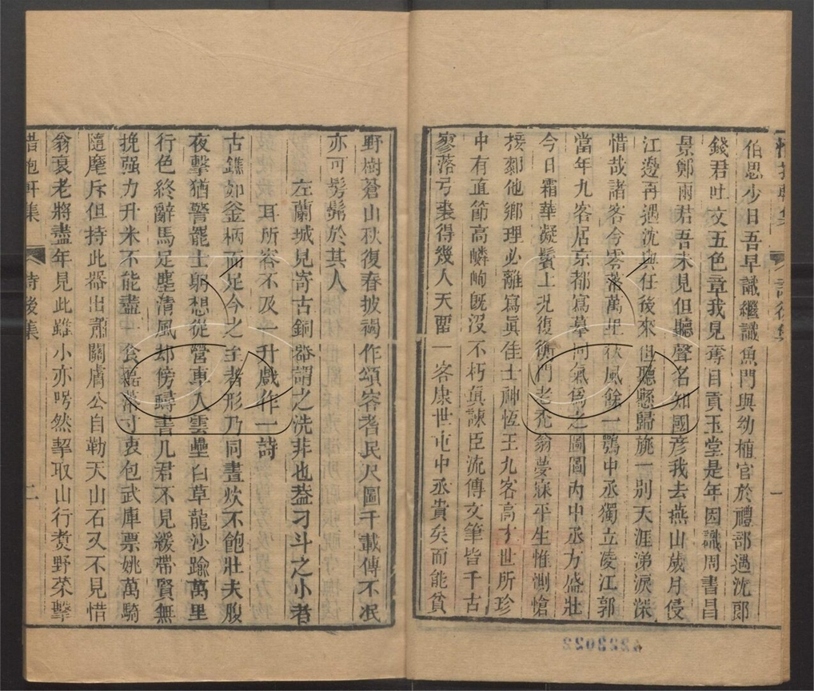 伯思少日吾早識繼識魚門與幼植官於禮部遇沈郎
錢君吐文五色章我見奪目貢玉堂是年因識周書昌
景鄭雨君吾未見但聽聲名知國彥我去燕山歲月侵
江邊再遇沈與任後來但聽懸歸旐一別天涯涕淚深
惜哉諸客今零落萬里秋風餘一鶚中丞獨立凌江郭
當年九客居京都寫摹同氣為之圖圖內中丞方盛壯
今日霜華凝鬢上況復衡門老禿翁夢寐平生惟惻愴
接鄰他鄉理必離寫真佳士神恆王九客高才世所珍
中有直節高嶙峋既沒不朽真諫臣流傳文筆皆千古
寥落弓裘得幾人天留一客康世屯中丞貴矣而能貧
一
野樹蒼山秋復春披褐作頌容者民尺圖千載傳不泯
亦可髣髴於其人
左蘭城見寄古銅器謂之洗非也葢刁斗之小者
耳所容不及一升戲作一詩
古鐎如釜柄而足今之至者形乃同晝炊不飽壯夫腹
夜擊猶警罷士躬想從營車入雲壘白草龍沙踰萬里
行色終辭馬足塵清風却傍疇書几君不見緩帶賢無
挽强力升米不能盡一食
常寸衷包武庫票姚萬騎
隨麾斥但持此器出蕭關膚公自勒天山石又不見惜
翁衰老將盡年見此雖小亦咢然挈取山行煑野菜擊
惜抱軒集
詩後集
二
4222022